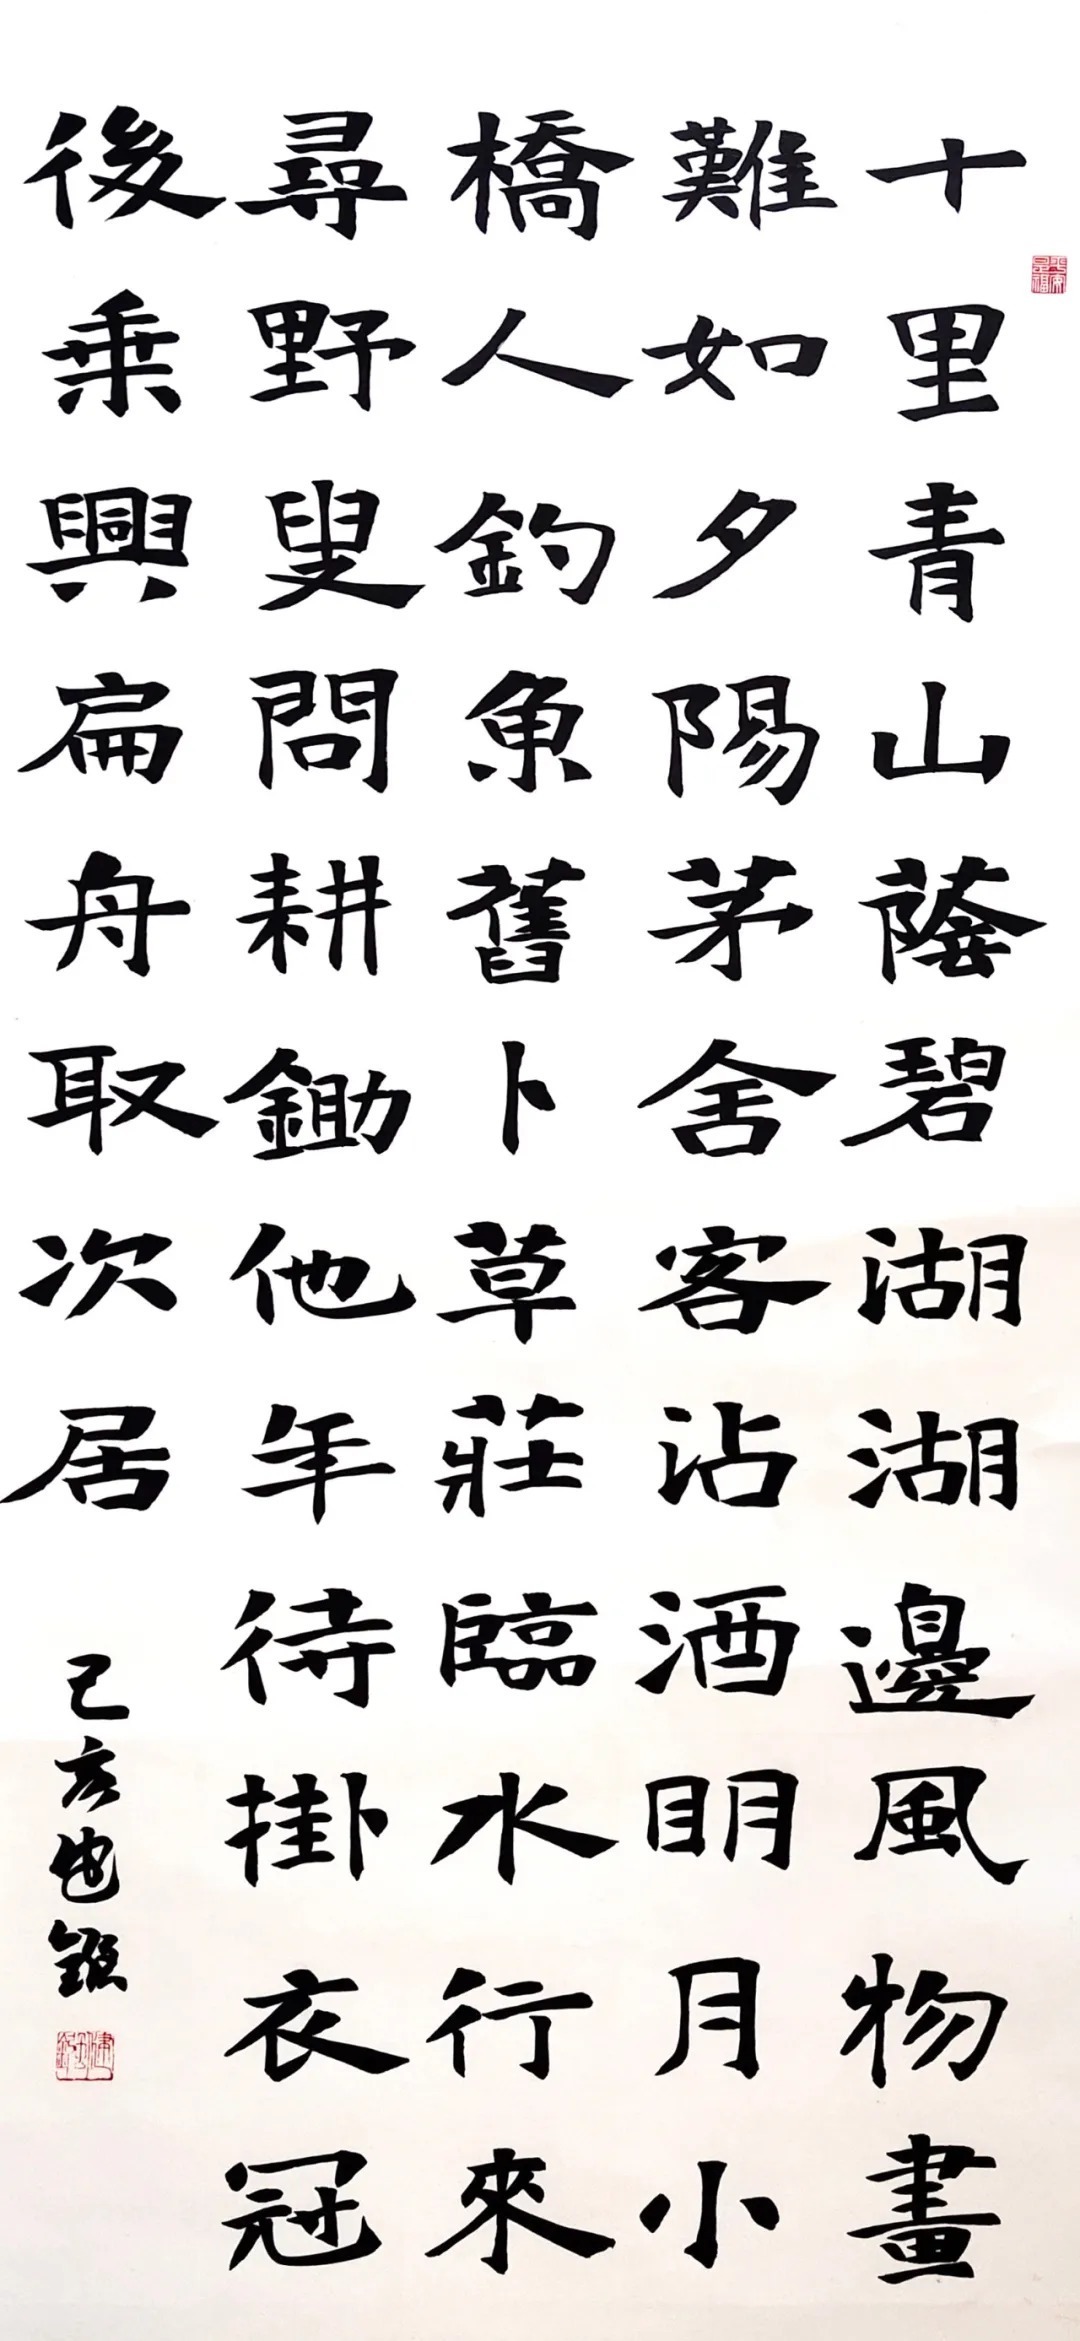 十里青山蔭碧湖湖邊風物畫
難如夕陽茅舍客沽酒明月小
橋人釣魚舊卜草莊臨水行來
尋野叟問耕鋤他年待掛衣冠
後乗興扁舟取次居
己亥